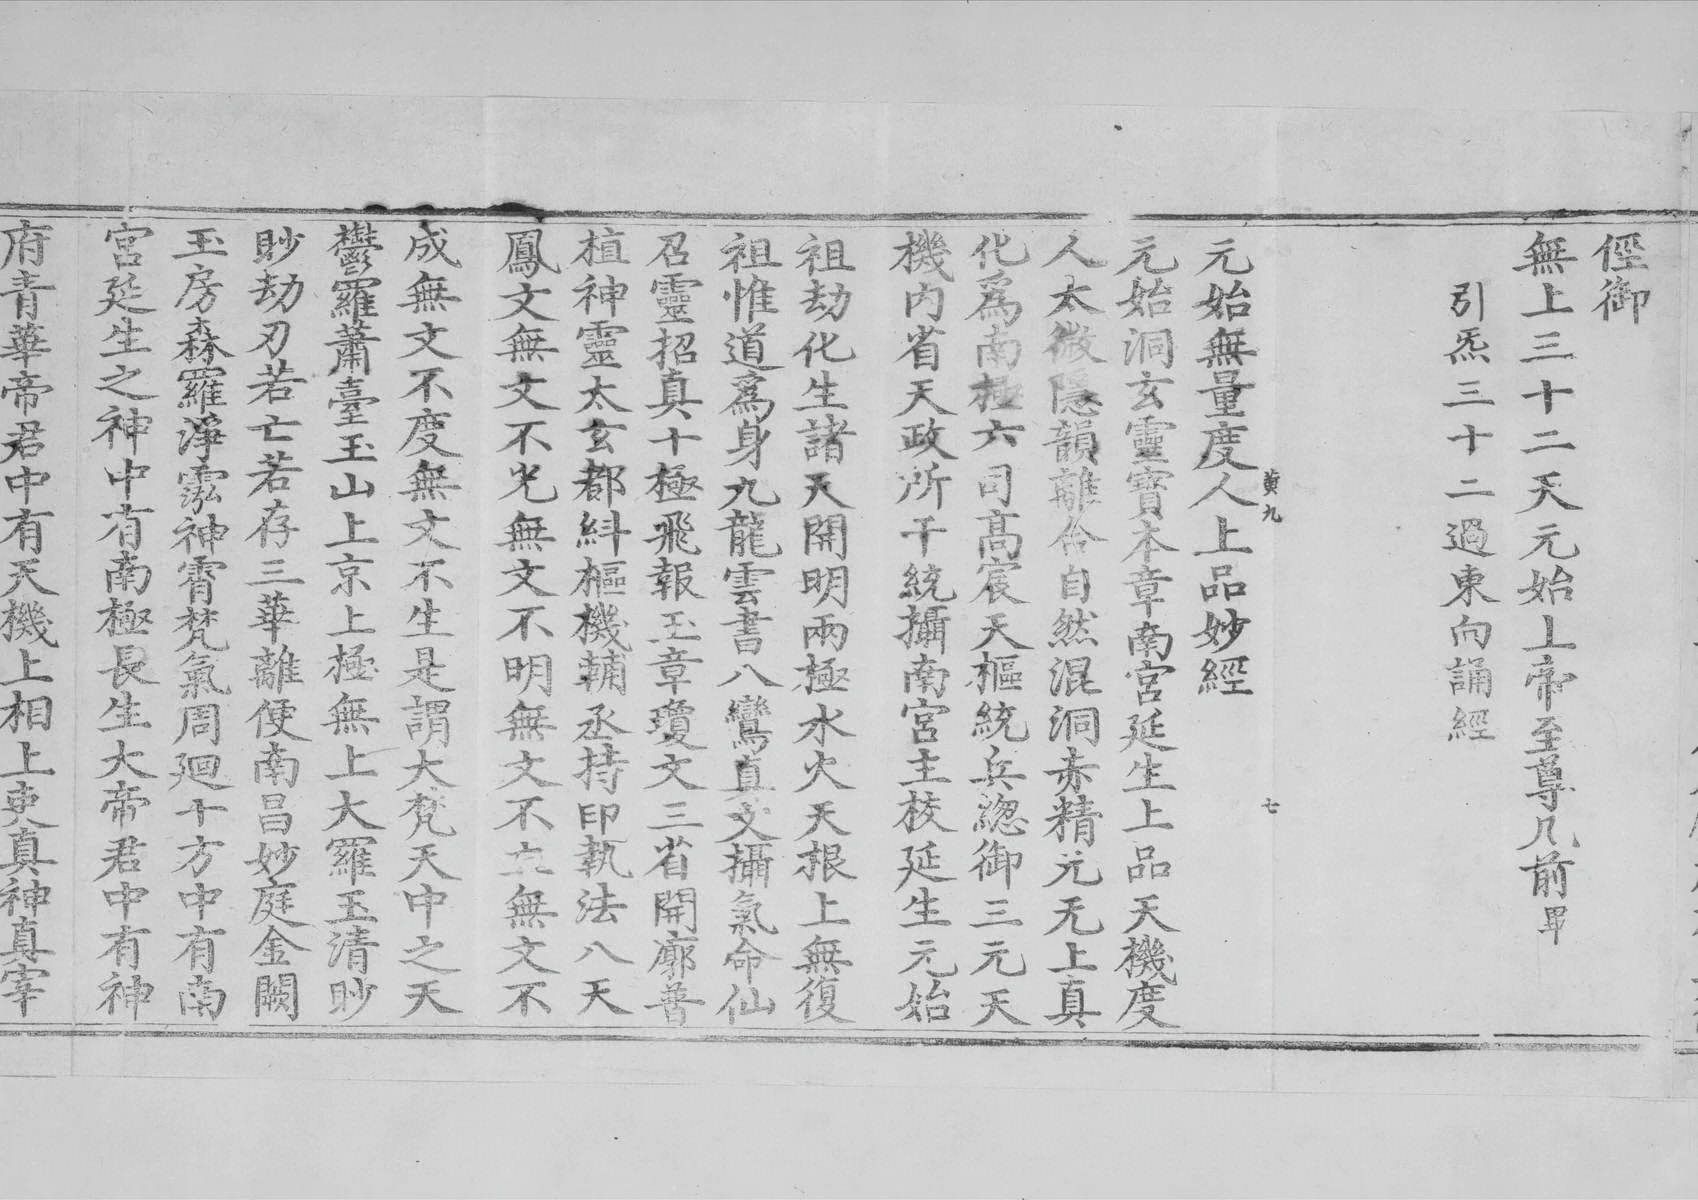 徑御
無上三十二天元始上帝至尊几前畢
引炁三十二過東向誦經
黄九
七
元始無量度人上品妙經
元始洞玄靈寶本章南宮延生上品天機度
人太微隱韻離合自然混洞赤精元无上真
化爲南極六司高宸天樞統兵總御三元天
機内省天政所千統攝南宮主校延生元始
祖劫化生諸天開明兩極水火天根上無復
祖惟道爲身九龍雲書八鸞真文攝氣命仙
召靈招真十極飛報玉章瓊文三省開廓普
植神靈太玄都糾樞機輔丞持印執法八天
鳳文無文不光無文不明無文不立無文不
成無文不度無文不生是謂大梵天中之天
鬱羅蕭臺玉山上京上極無上大羅玉清眇
眇劫刃若亡若存三華離便南昌妙庭金闕
玉房森羅淨泓神霄梵氣周迴十方中有南
宮延生之神中有南極長生大帝君中有神
府青華帝君中有天機上相上吏真神真宰